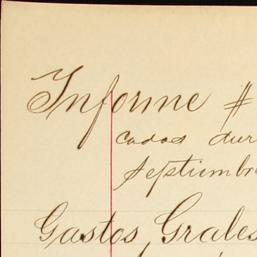 Informe #
cados dur
Septiembr
Gastos Grales